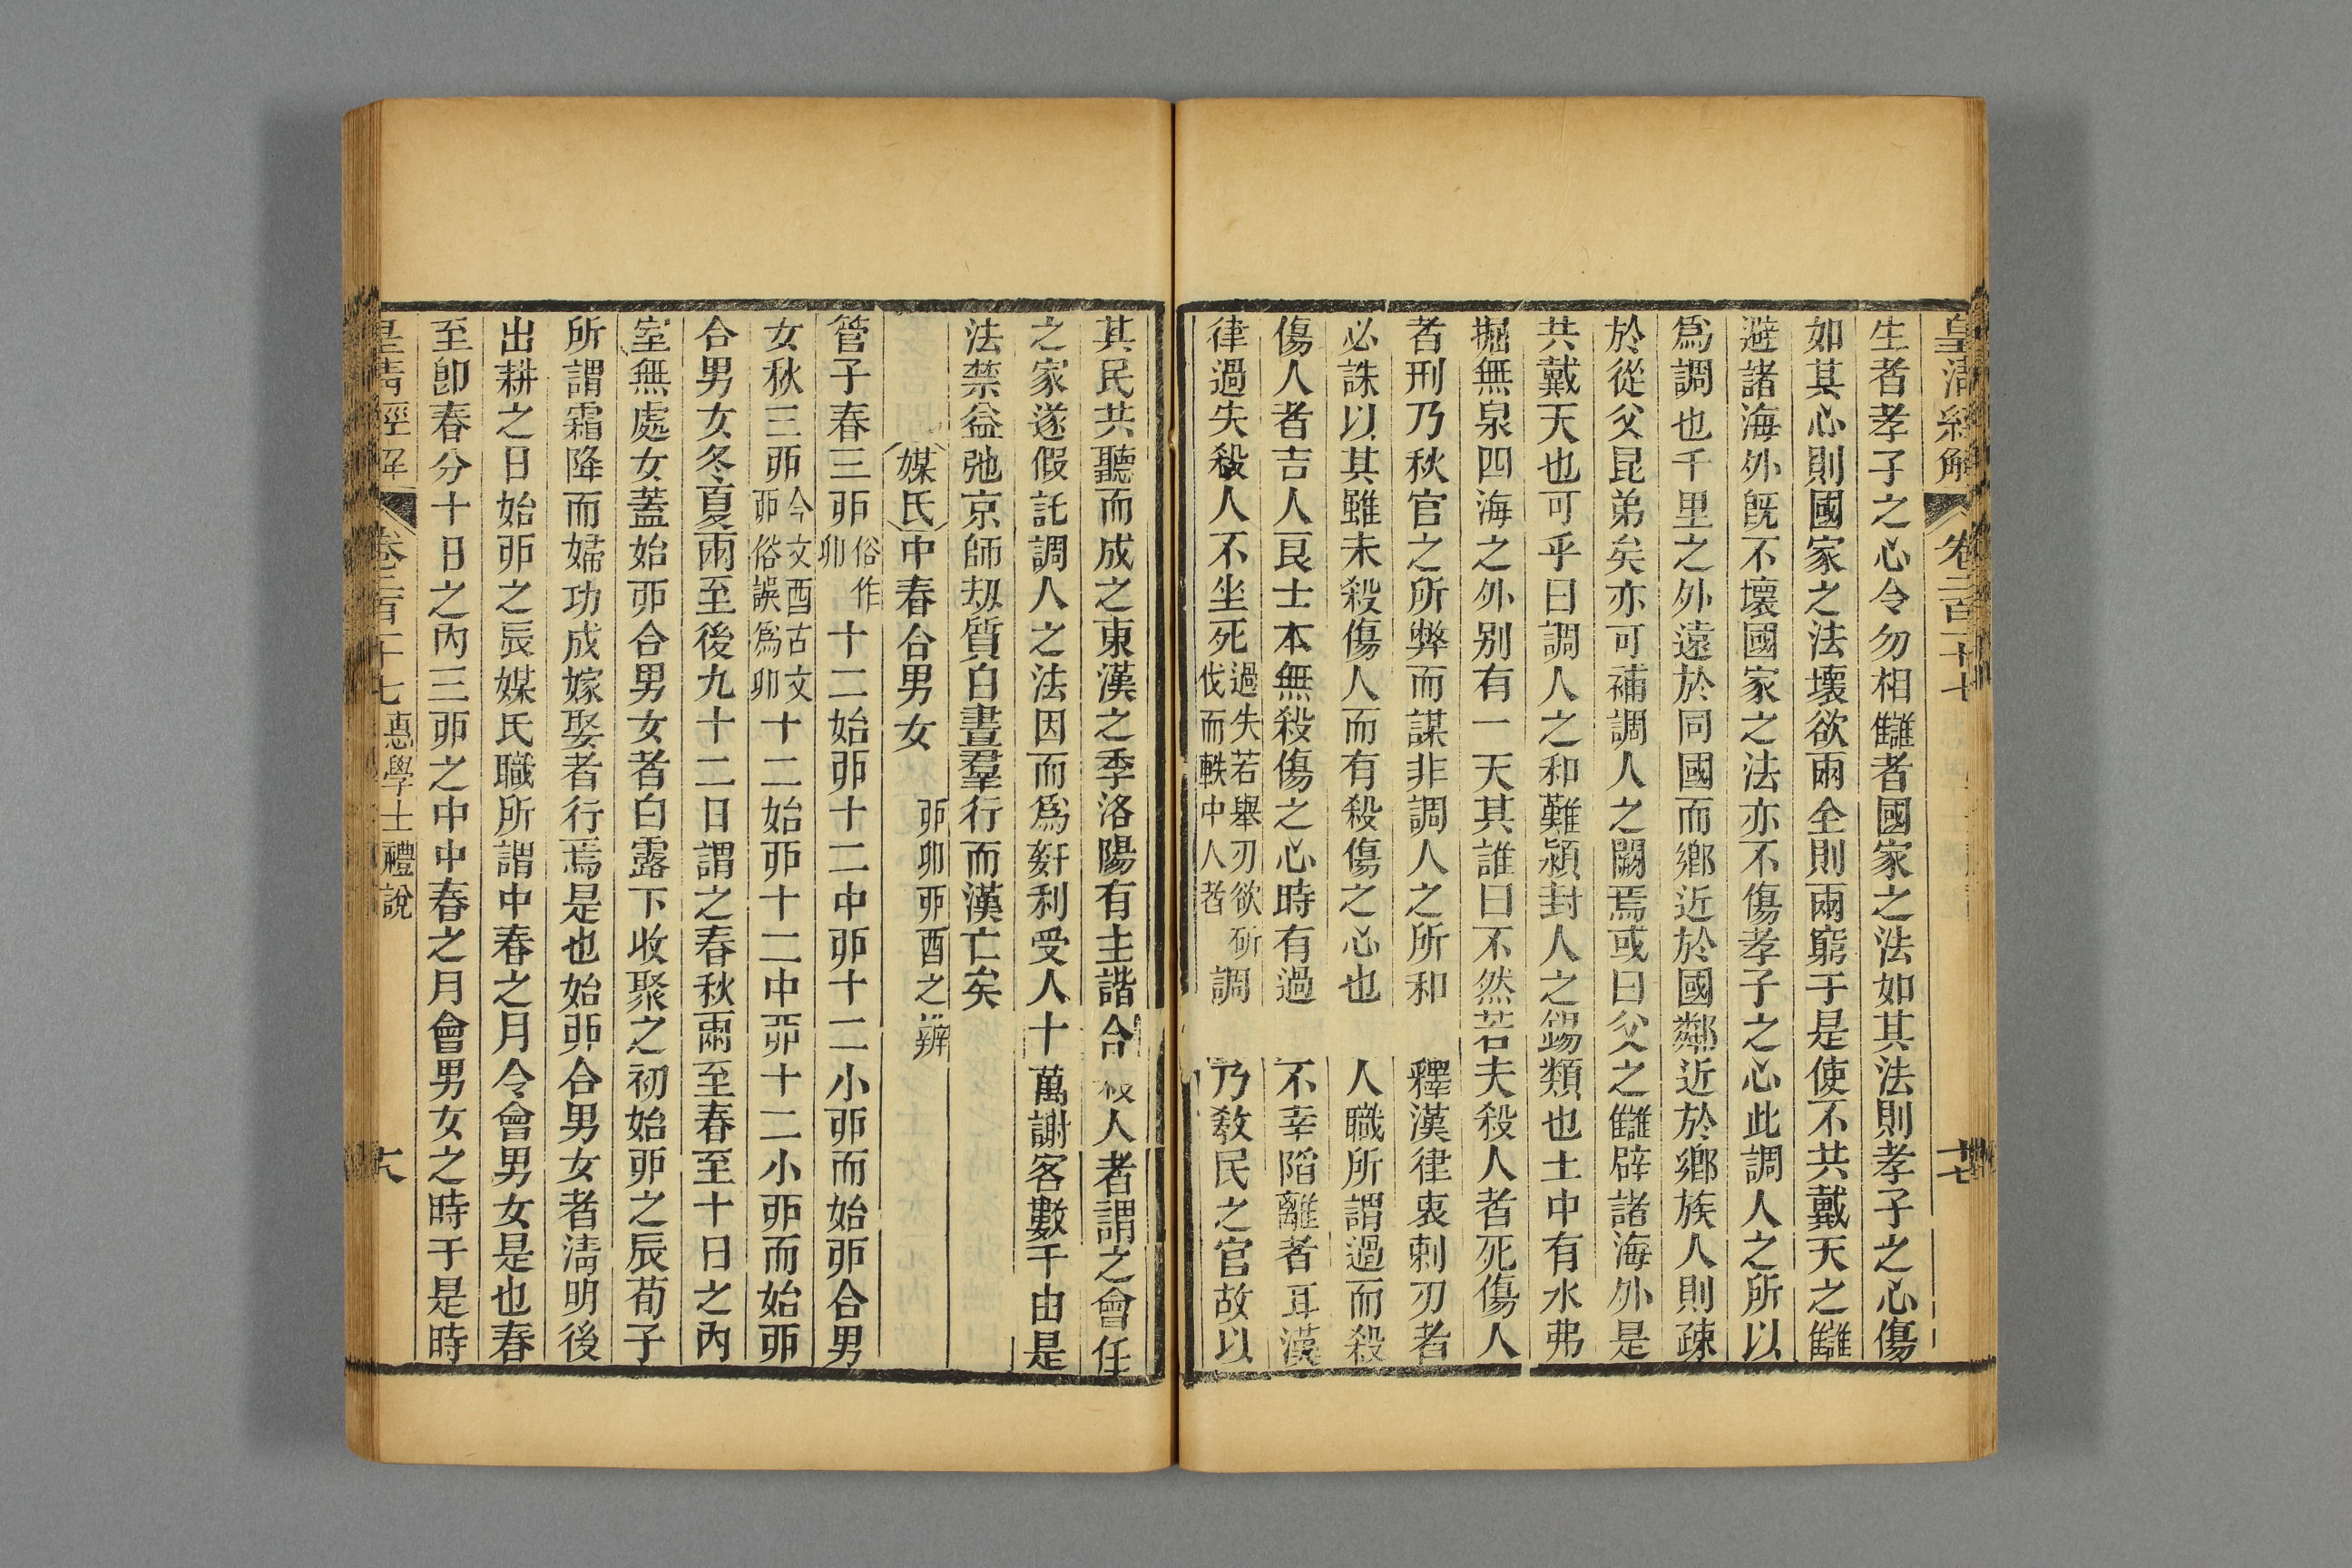 皇淸經解 卷二百十七 十七
生者孝子之心令勿相讎者國家之法如其法則孝子之心傷
如其心則國家之法壞欲兩全則兩窮于是使不共戴天之讎
避諸海外旣不壞國家之法亦不傷孝子之心此調人之所以
爲調也千里之外遠於同國而鄉近於國鄰近於鄉族人則疎
於從父昆弟矣亦可補調人之闕焉或曰父之讎辟諸海外是
共戴天也可乎曰調人之和難潁封人之錫類也土中有水弗
掘無泉四海之外別有一天其誰曰不然若夫殺人者死傷人
者刑乃秋官之所弊而謀非調人之所和 釋漢律衷刺刃者
必誅以其雖未殺傷人而有殺傷之心也 人職所謂過而殺
傷人者吉人良士本無殺傷之心時有過 不幸陷離者耳漢
律過失殺人不坐死過失若舉刃欲斫伐而軼中人者調 乃敎民之官故以
其民共聽而成之東漢之季洛陽有主諧合殺人者謂之會任
之家遂假託調人之法因而爲姧利受人十萬謝客數千由是
法禁益弛京師刼質白晝羣行而漢亡矣
〔媒氏〕中春合男女 戼卯丣酉之辨
管子春三戼俗作卯十二始戼十二中戼十二小戼而始戼合男
女秋三丣今文酉古文丣俗誤爲卯十二始丣十二中丣十二小丣而始丣
合男女冬夏兩至後九十二日謂之春秋兩至春至十日之內
室無處女蓋始戼合男女者白露下收聚之初始丣之辰荀子
所謂霜降而婦功成嫁娶者行焉是也始戼合男女者淸明後
出耕之日始戼之辰媒氏職所謂中春之月令會男女是也春
至卽春分十日之內三戼之中中春之月會男女之時于是時
皇淸經解 卷二百十七 惠學士禮說 十八